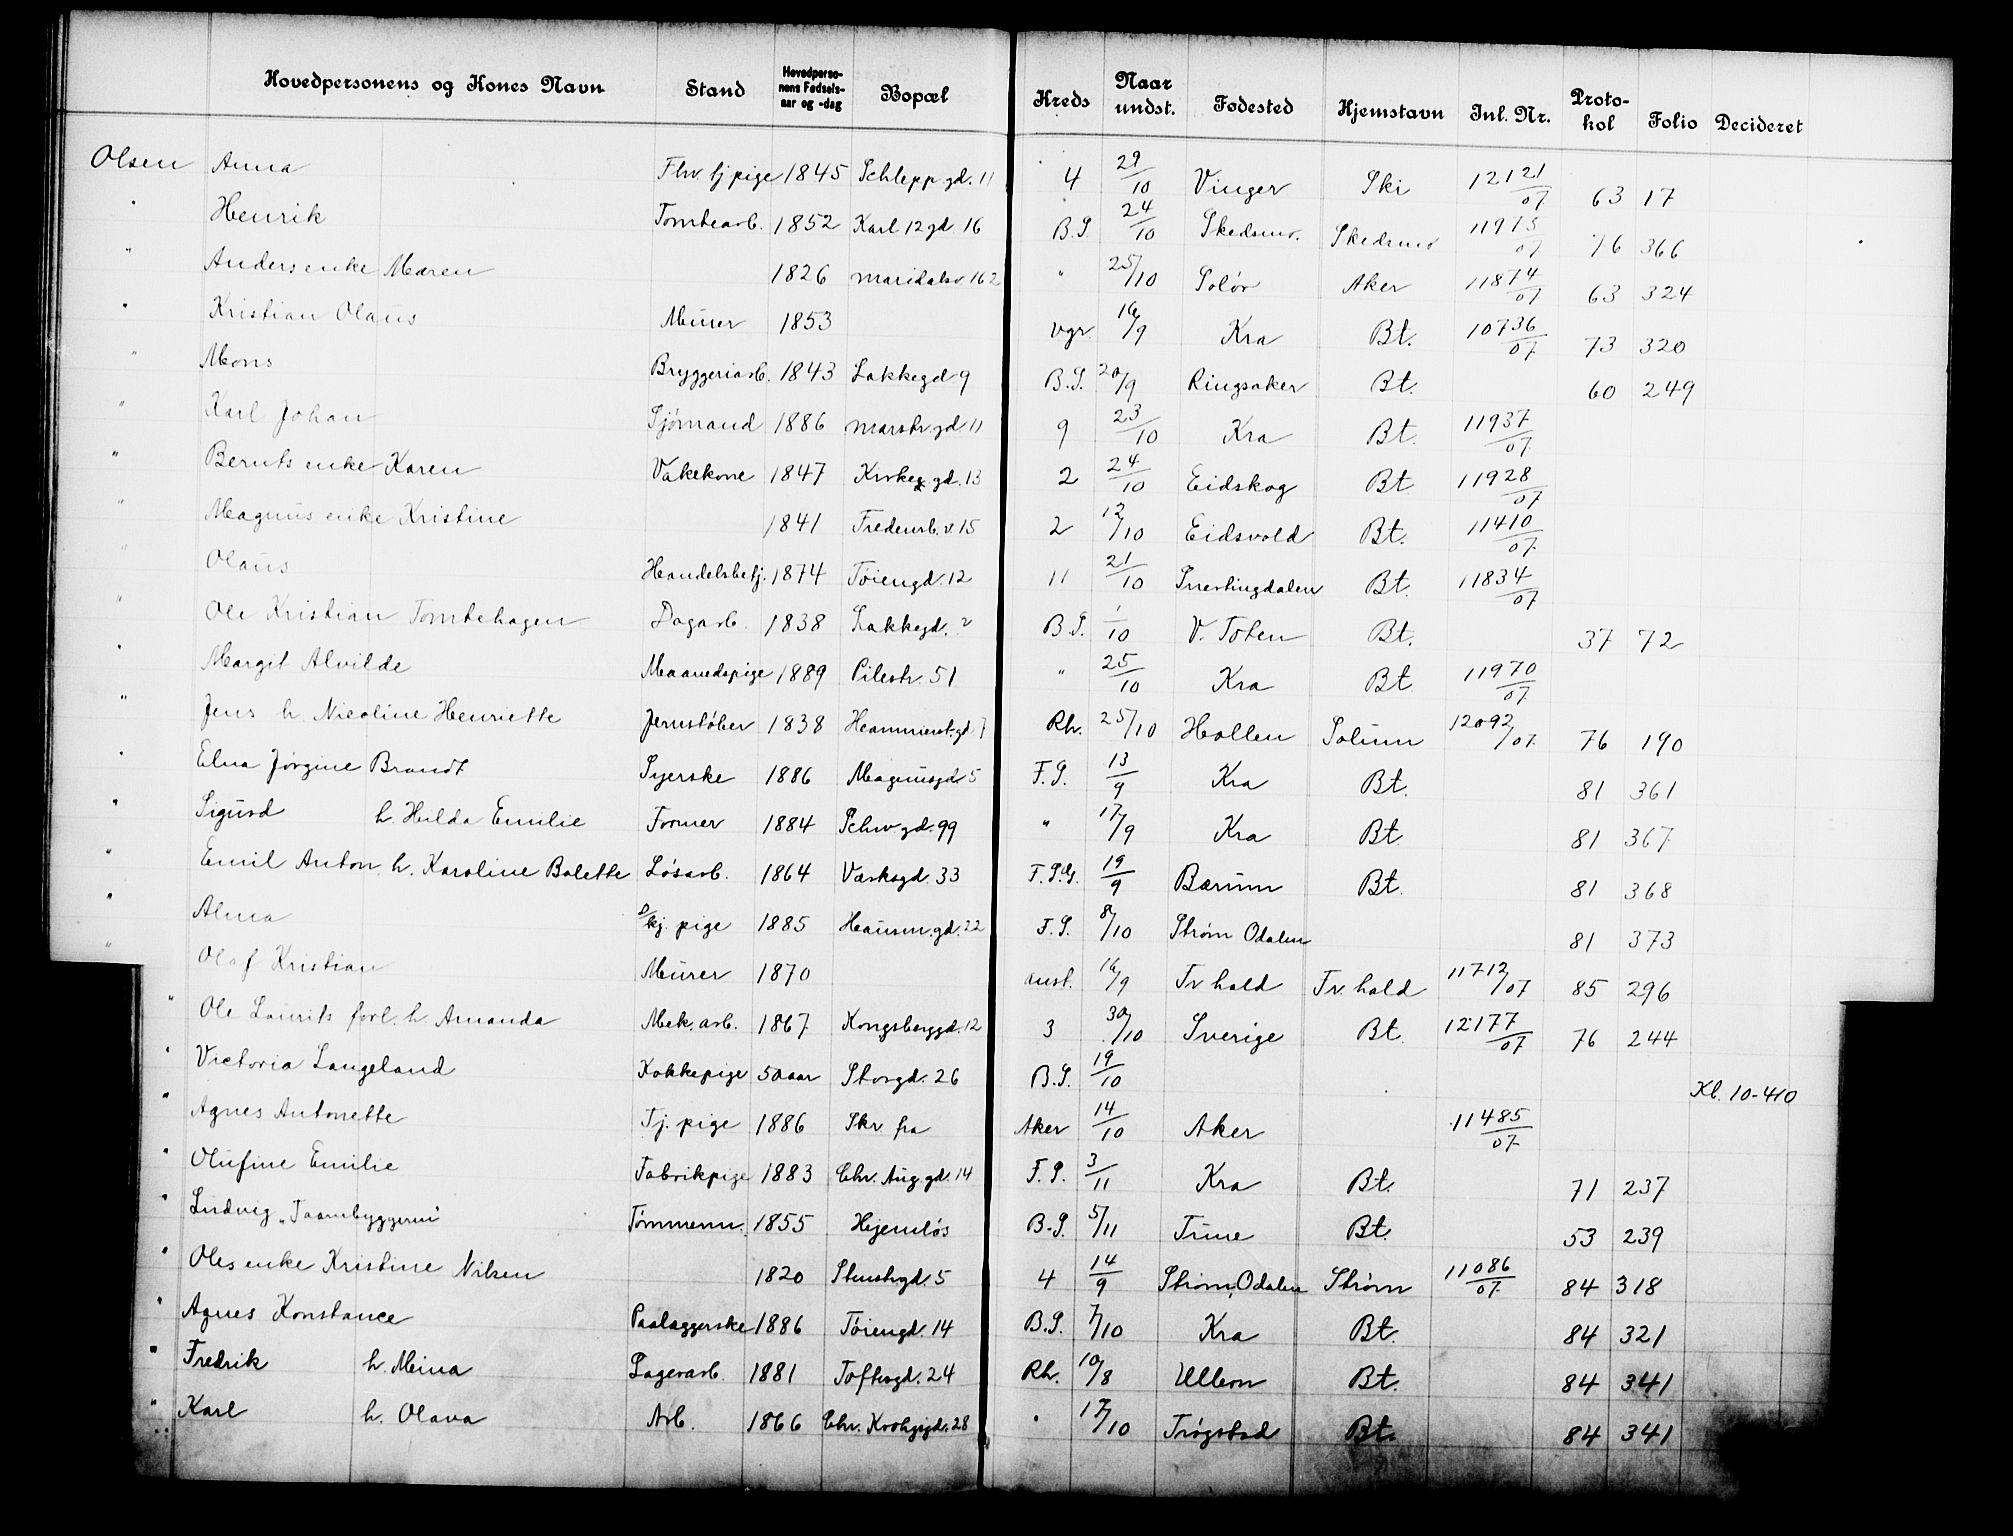 Hovedpersonens og Kones Navn Stand Hovedpersonens Fødselsaar og -dag Bopæl Kreds Naar undst. Fødested Hjemstavn Inl. Nr. Protokol Folio Decideret
Olsen Anna Fhv. tj pige 1845 Schlepp.gd. 11 4 29/10 Vinger Ski 12121/07 63 17
" Henrik Tomtearb. 1852 Karl 12 gd. 16 B.S. 24/10 Skedsmo. Skedsmo 11975/07 76 366
" Anders enke Maren 1826 Maridalsv. 162 " 25/10 Solør Aker 11874/07 63 324
" Kristian Olaus Murer 1853 vgr. 16/9 Kra Bt. 10736/07 73 320
" Mons Bryggeriarb. 1843 Lakkegd 9 B.S. 20/9 Ringsaker Bt. 60 249
" Karl Johan Sjømand 1886 Marstr.gd. 11 9 23/10 Kra Bt. 11937/07
" Bernts enke Karen Vakekone 1847 Kirkeg.gd. 13 2 24/10 Eidskog Bt 11928/07
" Magnus enke Kristine 1841 Fredensb.v. 15 2 12/10 Eidsvold Bt. 11410/07
" Olaus Handelsbetj. 1874 Tøiengd. 12 11 21/10 Snertingdalen Bt. 11834/07
" Ole Kristian Tomtehagen Dagarb. 1838 Lakkegd. ? B.S. 1/10 V. Toten Bt. 37 72
" Margit Alvilde Maanedspige 1889 Pilestr. 51 " 25/10 Kra Bt. 11970/07
" Jens h. Nicoline Henriette Jernstøber 1838 Hammerst.gd 7 Rh. 25/10 Hollen Solum 12092/07. 76 190
" Elna Jørgine Brandt Syerske 1886 Magnusgd. 5 F.S. 13/9 Kra Bt. 81 361
" Sigurd h. Hulda Emilie Former 1884 Schw.gd. 99 " 17/9 Kra Bt. 81 367
" Emil Anton h. Karoline Bolette Løsarb. 1864 Værksgd. 33 F.S.G. 19/9 Bærum Bt. 81 368
" Alma pige 1885 Hausm.gd. 22 F.S. 8/10 Strøm Odalen 81 373
" Olaf Kristian Murer 1870 anst. 16/9 Tr. hald Tr. hald 11712/07 85 296
" Ole Laurits forl. h. Amanda Mek. arb. 1867 Kongsberggd. 12 3 30/10 Sverige Bt. 12177/07 76 244
" Victoria Langeland Kokkepige 50 aar Storgd. 26 B.S. 19/10 Kl. 10-410
" Agnes Antonette Tj. pige 1886 Skr fra Aker 14/10 Aker 11485/07
" Olufine Emilie Fabrikpige 1883 Chr. Aug.gd. 14 F.S. 3/11 Kra Bt. 71 237
" Ludvig „Taarnbyggeren" Tømmerm. 1855 Hjemløs B.S. 5/11 Trine Bt. 53 239
" Oles enke Kristine Nilsen 1820 Stenstrgd. 5 4 14/9 Strøm, Odalen Strøm 11086/07. 84 318
" Agnes Konstance Paalæggerske 1886 Tøiengd. 14 B.S. 7/10 Kra Bt. 84 321
" Fredrik h. Mina Lagerarb. 1881 Toftesgd. 24 Rh. 10/8 Ullern Bt. 84 341
" Karl h. Olava Arb. 1866 Chr. Kroghsgd. 28 " 17/10 Trøgstad Bt. 84 341